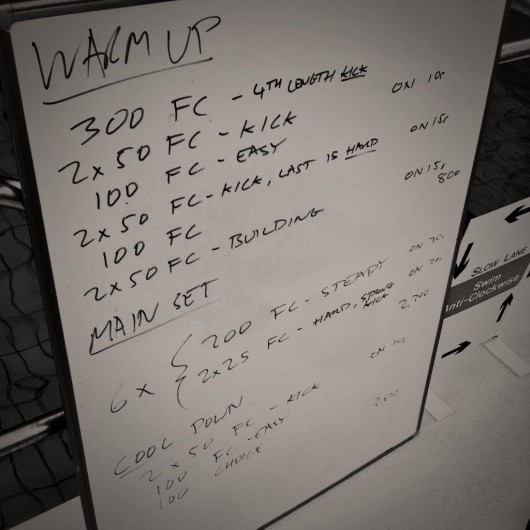 WARM UP
300 FC - 4TH LENGTH KICK
2 x 50 FC - KICK ON 10s
100 FC - EASY
2 x 50 FC - KICK, LAST IS HARD ON 15s
100 FC
2 x 50 FC - BUILDING ON 15s
800
MAIN SET
6 x { 200 FC - STEADY ON 30s
2 x 25 FC - HARD, STRONG KICK ON 20s
2,300
COOL DOWN
2 x 50 FC - KICK ON 10s
100 FC - EASY
100 CHOICE
SLOW LANE
Swim
Anti-Clockwise